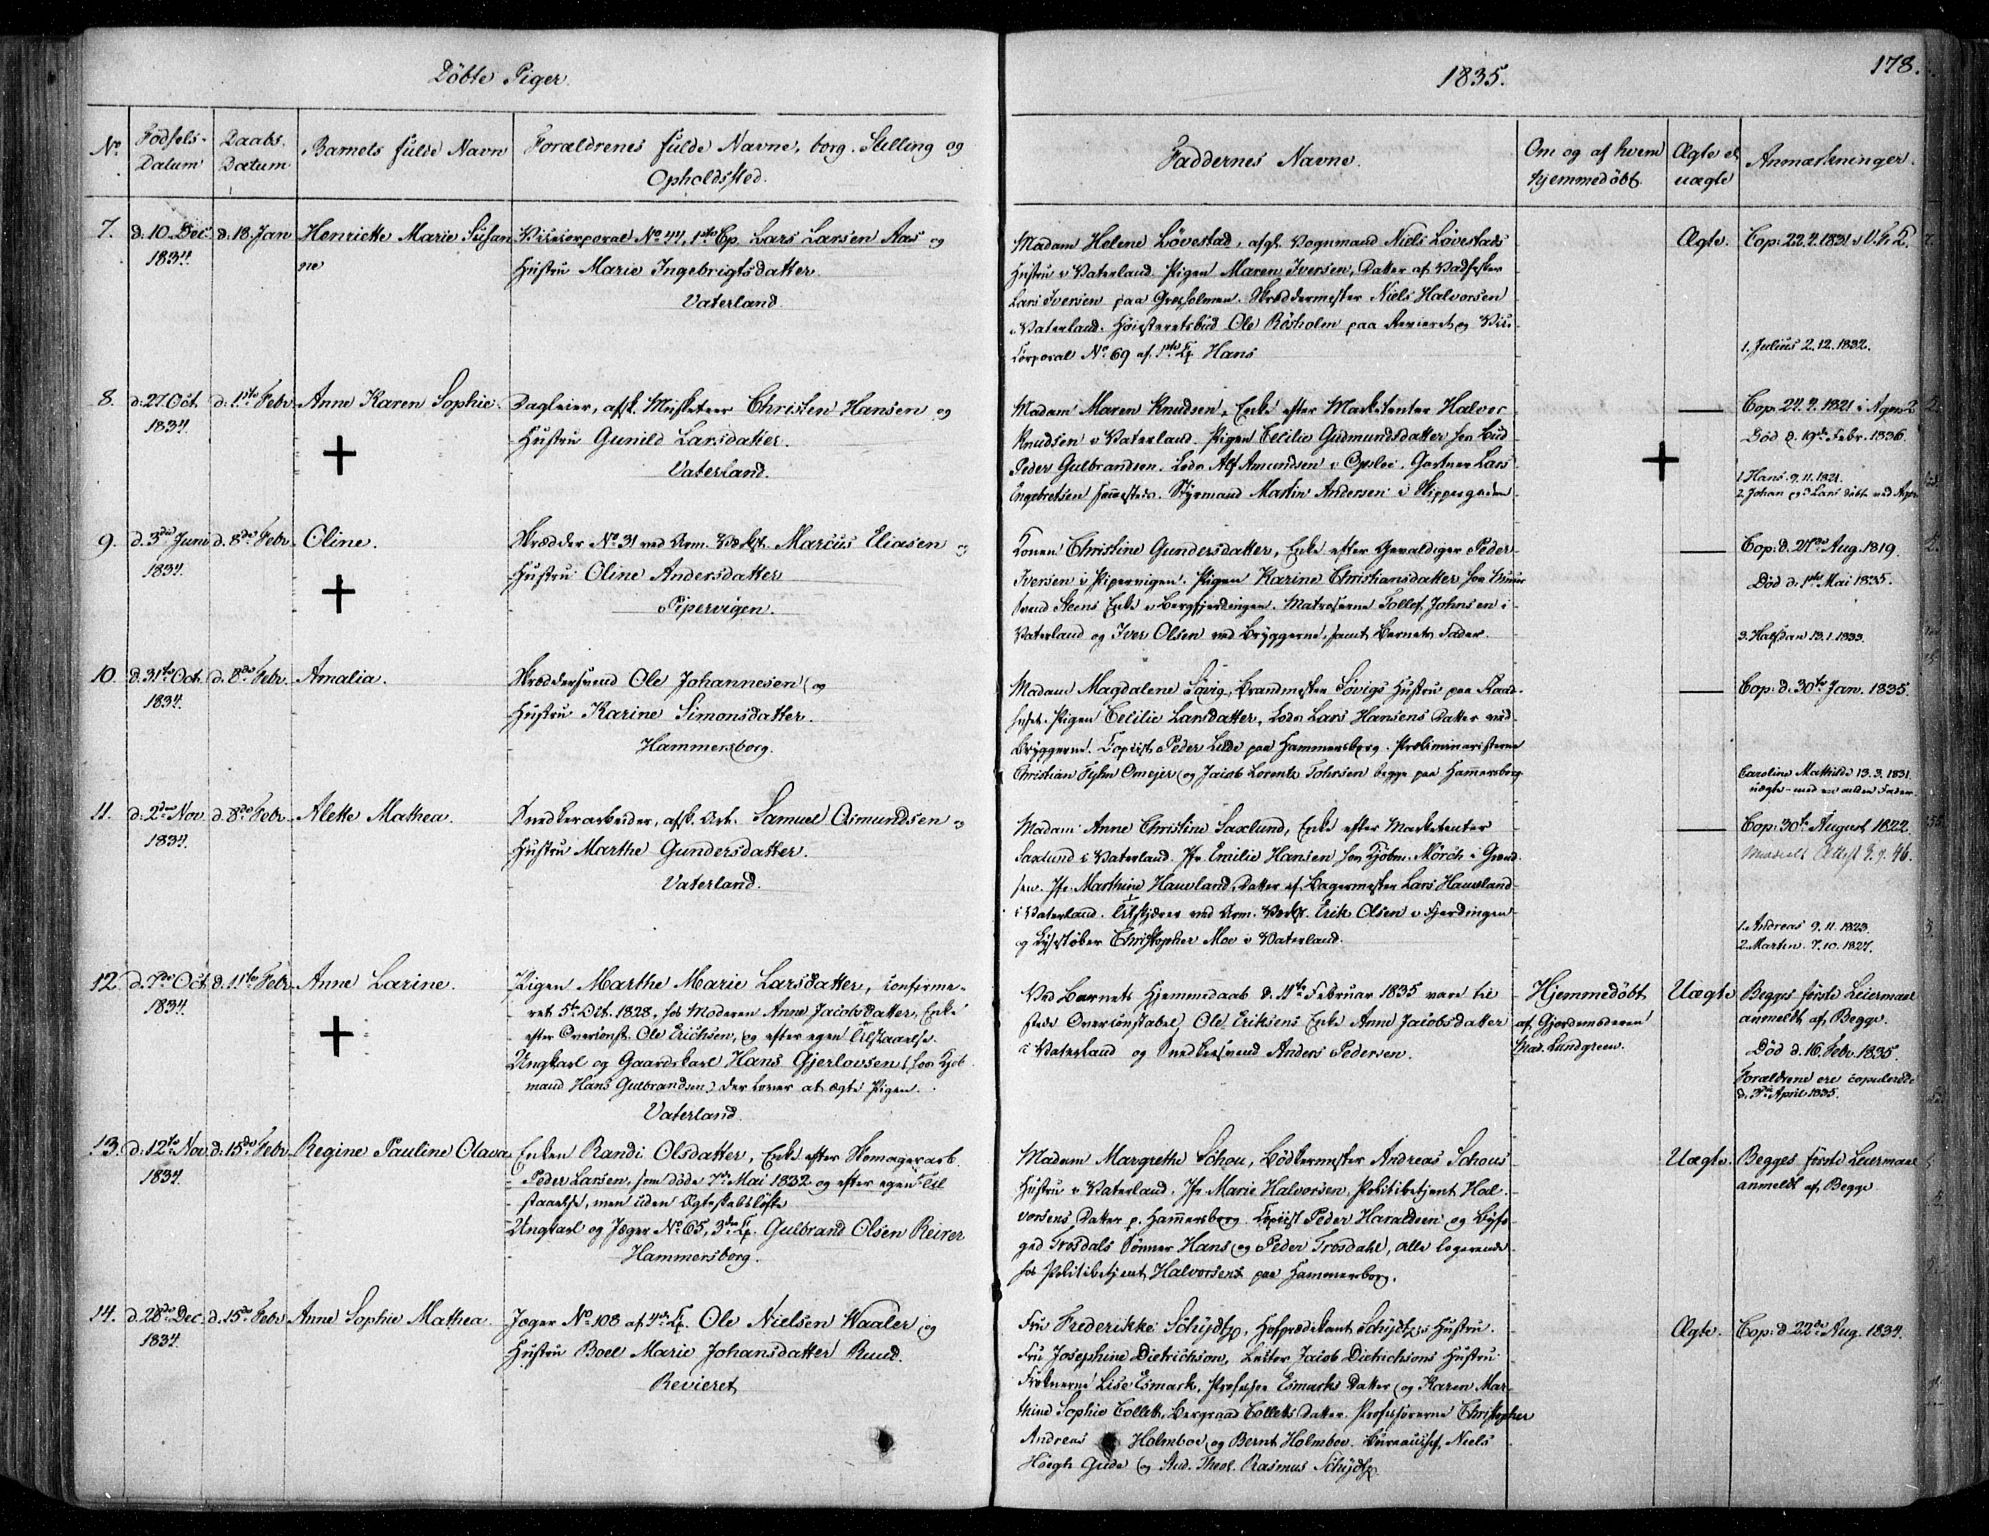 Døbte Piger.
1835.
178.
No.
Fødsels-
Datum
Daabs.
Datum
Barnets fulde Navn
Forældrenes fulde Navne, borg. Stilling og
Opholdssted.
Faddernes Navne.
Om og af hvem
hjemmedøbt.
Ægte el.
uægte
Anmærkninger.
7. d. 10 Dec. d. 18. Jan Henriette Marie Susan
1834. ne
Vicecorporal No 44, 1ste Cp. Lars Larsen Aas og
Hustru Marie Ingebrigtsdatter.
Vaterland.
Madam Helene Løvestad, afgl. Vognmand Niels Løvestads
Hustru i Vaterland. Pigen Maren Iversen, Datter af
Lars Iversen paa Græsholmen. Skræddermester Niels Halvorsen
i Vaterland. Høiesteretsbud Ole Røsholm paa Revieret og Vice
Corporal No 69 af 1ste Cp. Hans
Ægte.
Cop: 22.4.1831
1. Julius 2.12.1832.
8. d. 27 Oct. d. 1ste Febr. Anne Karen Sophie.
1834.
Dagleier, afsk. Musketeer Christen Hansen og
Hustru Gunild Larsdatter.
Vaterland.
Madam Maren Knudsen, Enke efter Marketenter Halvor
Knudsen i Vaterland. Pigen Cecilie Gudmundsdatter hos Bud
Peder Gulbrandsen. Lods Alf Amundsen i Opsloe. Gartner Lars
Engebretsen sammesteds. Styrmand Martin Andersen i Skippergaden
Cop: 24.4.1821 i Agers
Død d. 19de Febr. 1836.
1. Hans. 9.11.1821.
2. Johan og 3 Lars døbt ved Agers
9. d. 3die Juni d. 8de Febr. Oline.
1834.
Skrædder No 31 ved Arm. Marcus Eliasen og
Hustru Oline Andersdatter
Pipervigen.
Konen Christine Gundersdatter, Enke efter Gevaldiger Peder
Iversen i Pipervigen. Pigen Karine Christiansdatter hos
Svend Steens Enke i Bergfjerdingen. Matroserne Tollef Johnsen i
Vaterland og Iver Olsen ved Bryggerne, samt Barnets Fader.
Cop: d. 27de Aug. 1819.
Død d. 1ste Mai 1835.
3. Halfdan 13.1.1833
10. d. 31te Oct. d. 8de Febr. Amalia.
1834.
Skræddersvend Ole Johannesen og
Hustru Karine Simonsdatter.
Hammersborg.
Madam Magdalene Søvig, Brandmester Søvigs Hustru paa Raad-
huset. Pigen Cecilie Larsdatter, Lods Lars Hansens Datter ved
Bryggerne. Copiist Peder Lude paa Hammersborg. Præliminaristerne
Christian Fyhn Omejer og Jacob Lorentz Tohrsen begge paa Hammersborg
Cop: d. 30te Jan. 1835.
Caroline Mathilde 13.3.1831.
uægte - med en anden Fader.
11. d. 2den Nov. d. 8de Febr. Alette Mathea.
1834.
Snedkerarbeider, afsk. Art. Samuel Osmundsen og
Hustru Marthe Gundersdatter.
Vaterland.
Madam Anne Christine Saxlund, Enke efter Marketenter
Saxlund i Vaterland. Jfr. Emilie Hansen hos Kjøbm. Mørch i Grænd-
sen. Jfr. Marthine Hauvland, Datter af Bagermester Lars Hauvland
i Vaterland. Tilskjærer ved Arm. Erik Olsen i Fjerdingen
og Lysestøber Christopher Moe i Vaterland.
Cop: 30te August 1822.
Attest 46.
1. Andreas 9.11.1823.
2. Martin. 7.10.1827.
12. d. 7de Oct. d. 11te Febr. Anne Larine.
1834.
Pigen Marthe Marie Larsdatter, confirme-
ret 5te Oct. 1828, hos Moderen Anne Jacobsdatter, Enke
efter Overconst. Ole Erichsen, og efter egen Tilstaaelse.
Ungkarl og Gaardskarl Hans Gjerlovsen (hos Kjøb
mand Hans Gulbrandsen) der lover at ægte Pigen.
Vaterland.
Ved Barnets Hjemmedaab d. 11te Februar 1835 vare til
stede Overconstabel Ole Eriksens Enke Anne Jacobsdatter
i Vaterland og Snedkersvend Anders Pedersen.
Hjemmedøbt
af Gjordemoderen
Mad. Lundgreen.
Uægte
Begges første Leiermaal
anmeldt af Begge.
Død d. 16. Febr. 1835.
Forældrene ere copulerede
d. April 1835.
13. d. 12te Nov. d. 15de Febr. Regine Pauline Olava
1834.
Enken Randi Olsdatter, Enke efter Skomagerarb.
Peder Larsen, som døde 7de Mai 1832 og efter egen Til
staaelse, men uden Ægteskabsløfte
Ungkarl og Jæger No 65, 3die Cp. Gulbrand Olsen Reirer
Hammersborg.
Madam Margrethe Schou, Bødkermester Andreas Schous
Hustru i Vaterland. Jfr. Marie Halvorsen, Politibetjent Hal-
vorsens Datter p. Hammersborg. Copiist Peder Haraldsen og Byfo-
ged Trosdals Sønner Hans og Peder Trosdahl, alle logerende
hos Politibetjent Halvorsens paa Hammersborg.
Uægte.
Begges første Leiermaal
anmeldt af Begge
14. d. 28de Dec. d. 15de Febr. Anne Sophie Mathea.
1834.
Jæger No 108 af 4de Cp. Ole Nielsen Waaler og
Hustru Boel Marie Johansdatter Ruud.
Revieret
Fru Frederikke Schydtz, Hofprædikant Schydtz's Hustru.
Fru Josephine Dietrichson, Lector Jacob Dietrichsons Hustru
Frøknerne Lise Esmark, Professor Esmarks Datter og Karen Mar-
thine Sophie Collett, Bergraad Colletts Datter. Professorerne Christopher
Andreas Holmboe og Bernt Holmboe. Bureauchef Niels
Høegh Gude og Stud. Theol. Rasmus Schydtz
Ægte.
Cop: d. 22de Aug. 1834.